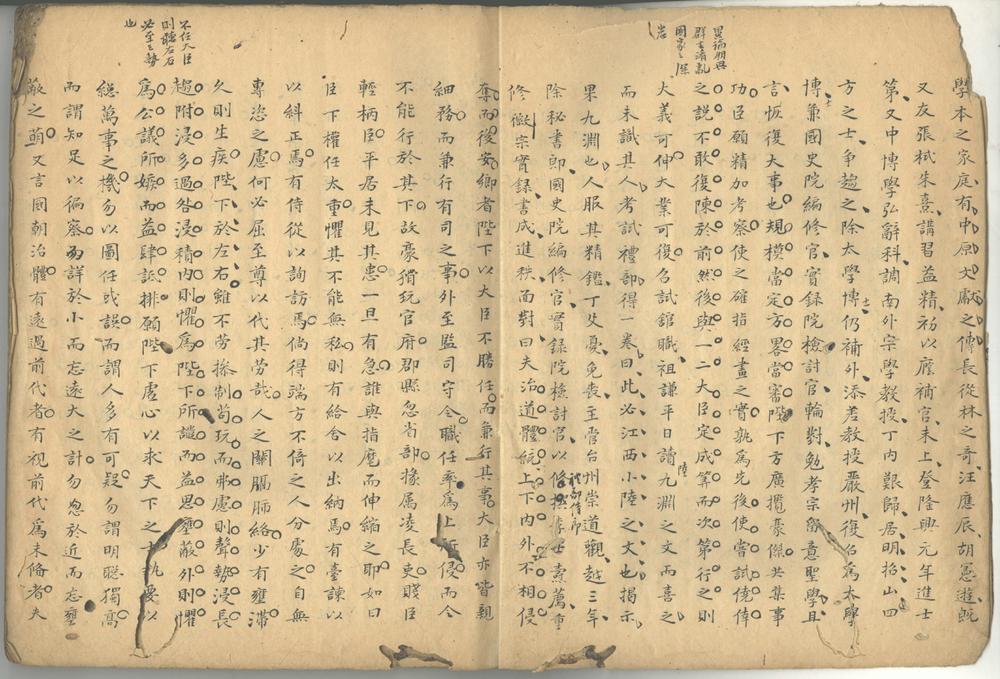 異論朋興
群言淆亂
國家之深
學本之家庭有中原文獻之傳長從林之奇汪應辰胡憲遊既
又友張栻朱熹講習益精初以廕補官未上登隆興元年進士
第又中博學弘辭科調南外宗學教授丁内艱歸居明招山四
方之士争趨之除太學博士仍補外添差教授嚴州復召爲太學
博士兼國史院編修官實録院檢討官輪對勉孝宗留意聖學且
言恢復大事也規模當定方畧當審陛下方廣攬豪傑共集事
功臣願精加考察使之確指經畫之實孰爲先後使嘗試僥倖
之說不敢復陳於前然後與一二大臣定成筭而次第行之則
大義可伸大業可復召試舘職祖謙平日讀陸九淵之文而喜之
而未識其人考試禮部得一卷曰此必江西小陸之文也揭示
果九淵也人服其精鑑丁父憂免喪主管台州崇道觀越三年
除秘書郎國史院編修官實録院檢討官以修撰李燾薦重
修徽宗實録書成進秩面對曰夫治道體統上下内外不相侵
不任大臣
則聽左右
必至之勢
也
奪而後安鄉者陛下以大臣不勝任而兼行其事大臣亦皆親
細務而兼行有司之事外至監司守令職任率爲上所侵而令
不能行於其下故豪猾玩官府郡縣忽省部掾属凌長吏賤臣
輕柄臣平居未見其患一旦有急誰與指麾而伸縮之耶如曰
臣下權任太重懼其不能無私則有給舍以出納焉有臺諫以
以糾正焉有侍從以詢訪焉倘得端方不倚之人分處之自無
專恣之慮何必屈至尊以代其勞哉人之關膈脉絡少有壅滯
久則生疾陛下於左右雖不劳操制苟玩而弗慮則聲勢浸長
趨附浸多過咎浸積内則懼爲陛下所譴而益思壅蔽外則懼
爲公議所嫉而益肆詆排願陛下虚心以求天下之士執要以
總萬事之機勿以圖任或誤而謂人多有可疑勿謂明聡獨高
而謂知足以徧察勿詳於小而忘遠大之計勿忽於近而忘壅
蔽之萌又言國朝治體有遠過前代者有視前代爲未脩者夫